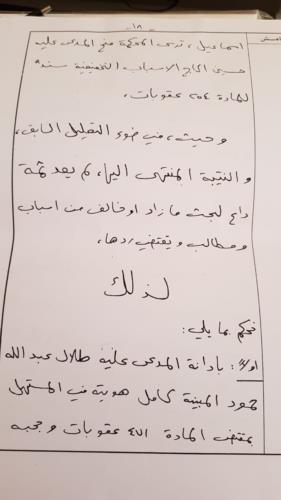 - ١٨ -
اسماعيل، ترى المحكمة منح المدعى عليه
حسين الحاج الاسباب التخفيفية سنداً
للمادة ٢٥٤ عقوبات،
وحيث، في ضوء التعليل السابق،
والنتيجة المنتهى اليها، لم يعد ثمة
داع لبحث ما زاد او خالف من اسباب
ومطالب ويقتضي ردها،
لذلك
نحكم بما يلي:
اولاً: بادانة المدعى عليه طلال عبد الله
حمود المبينة كامل هويته في المستهل
بمقتضى المادة ٤٧١ عقوبات وحبه